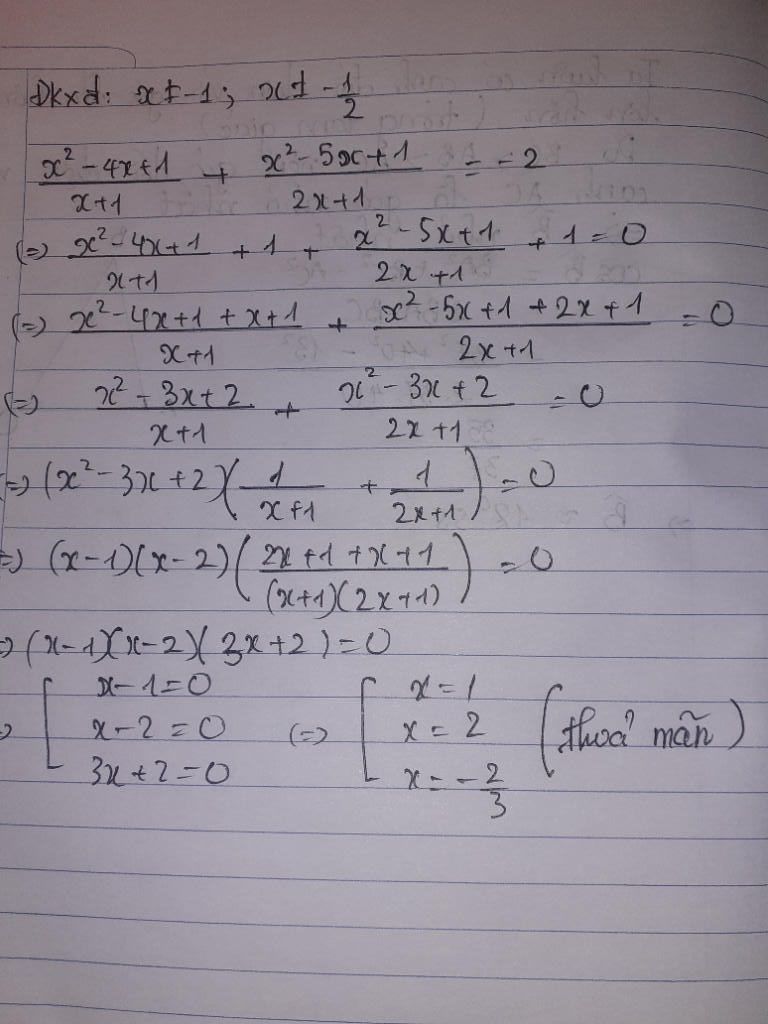 Đkxđ: x ≠ -1; x ≠ -1/2
(x² - 4x + 1)/(x+1) + (x² - 5x + 1)/(2x+1) = -2
(=) (x² - 4x + 1)/(x+1) + 1 + (x² - 5x + 1)/(2x+1) + 1 = 0
(=) (x² - 4x + 1 + x + 1)/(x+1) + (x² - 5x + 1 + 2x + 1)/(2x+1) = 0
(=) (x² - 3x + 2)/(x+1) + (x² - 3x + 2)/(2x+1) = 0
(=) (x² - 3x + 2)(1/(x+1) + 1/(2x+1)) = 0
=) (x-1)(x-2)((2x+1+x+1)/((x+1)(2x+1))) = 0
=) (x-1)(x-2)(3x+2) = 0
=) [ x-1=0 ; x-2=0 ; 3x+2=0 (=) [ x=1 ; x=2 ; x=-2/3 (thoả mãn)